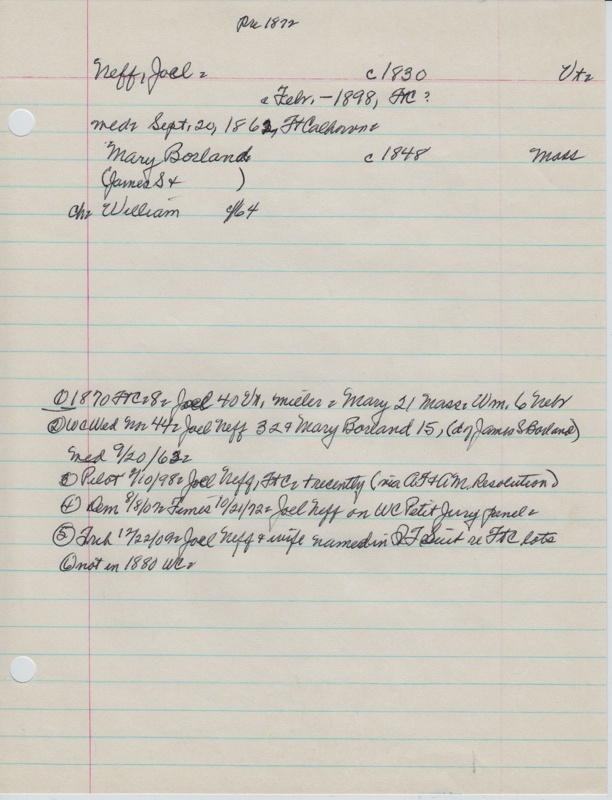 Pre 1872
Neff, Joel = c 1830 Vt=
= Febr. - 1898, FtC ?
med= Sept. 20, 1862, Ft Calhoun=
Mary Borland c 1848 Mass
(James S + )
ch= William c/64
① 1870 FtC=8= Joel 40 Vt, miller = Mary 21 Mass= Wm. 6 Nebr
② WC Wed Nr 44= Joel Neff 32 + Mary Borland 15, (d of James S Borland)
med 9/20/63=
③ Pilot 2/10/98= Joel Neff, FtC= + recently (via AF+AM. Resolution)
④ Dem 2/8/07= Times 10/21/72= Joel Neff on WC Petit Jury panel=
⑤ Trib 12/22/09= Joel Neff + wife named in suit re FtC lots
⑥ not in 1880 WC=